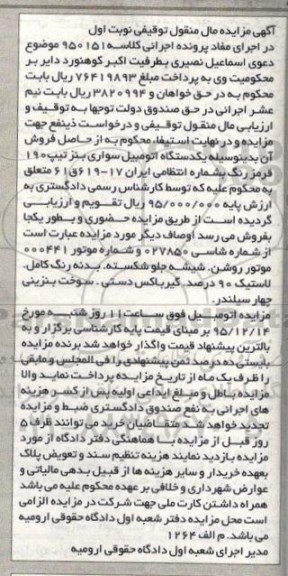 آگهی مزایده مال منقول توقیفی نوبت اول
در اجرای مفاد پرونده اجرائی کلاسه ۹۵۰۱۵۱ موضوع
دعوی اسماعیل نصیری بطرفیت اکبر کوهنورد دایر بر
محکومیت وی به پرداخت مبلغ ۷۶۴۱۹۸۹۳ ریال بابت
محکوم به در حق خواهان و ۳۸۲۰۹۹۴ ریال بابت نیم
عشر اجرائی در حق صندوق دولت توجها به توقیف و
ارزیابی مال منقول توقیفی و درخواست ذینفع جهت
مزایده و در نهایت استیفاء محکوم به از حاصل فروش
آن بدینوسیله یکدستگاه اتومبیل سواری بنز تیپ ۱۹۰
قرمز رنگ بشماره انتظامی ایران ۱۷-۶۱۹ق۶۱ متعلق
به محکوم علیه که توسط کارشناس رسمی دادگستری به
ارزش پایه ۹۵/۰۰۰/۰۰۰ ریال تقویم و ارزیابی
گردیده است از طریق مزایده حضوری و بطور یکجا
بفروش می رسد اوصاف دیگر مورد مزایده عبارت است
از شماره شاسی ۰۲۷۸۵۰ و شماره موتور ۰۰۰۴۴۱
موتور روشن. شیشه جلو شکسته. بدنه رنگ کامل.
لاستیک ۹۰ درصد. گیرباکس دستی. سوخت بنزینی
چهار سیلندر.
مزایده اتومبیل فوق ساعت ۱۱ روز شنبه مورخ
۹۵/۱۲/۱۴ بر مبنای قیمت پایه کارشناسی برگزار و به
بالاترین پیشنهاد قیمت واگذار خواهد شد برنده مزایده
بایستی ده درصد ثمن پیشنهادی را فی المجلس و مابقی
را ظرف یک ماه از تاریخ مزایده پرداخت نماید والا
مزایده باطل و مبلغ ایداعی اولیه پس از کسر هزینه
های اجرائی به نفع صندوق دادگستری ضبط و مزایده
تجدید خواهد شد متقاضیان خرید می توانند ظرف ۵
روز قبل از مزایده با هماهنگی دفتر دادگاه از مورد
مزایده بازدید نمایند هزینه تنظیم سند و تعویض پلاک
بعهده خریدار و سایر هزینه ها از قبیل بدهی مالیاتی و
عوارض شهرداری و خلافی بر عهده محکوم علیه می باشد
همراه داشتن کارت ملی جهت شرکت در مزایده الزامی
است محل مزایده دفتر شعبه اول دادگاه حقوقی ارومیه
می باشد. م الف ۱۲۶۴
مدیر اجرای شعبه اول دادگاه حقوقی ارومیه